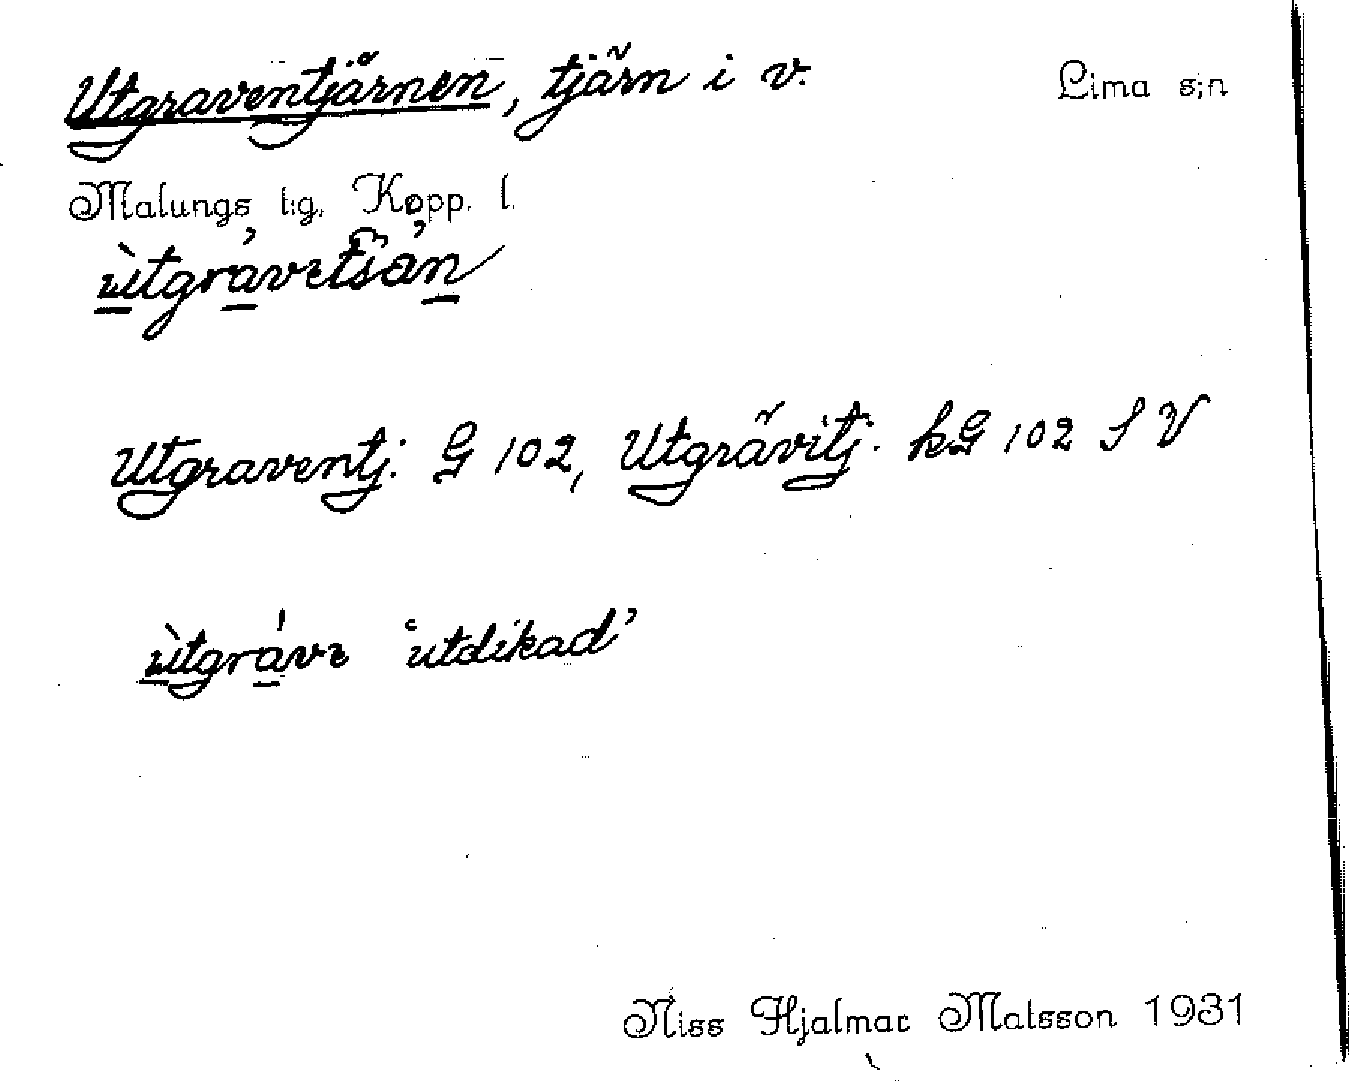 Utgraventjärnen, tjärn i v. Lima s:n
Malungs t:g. Kopp. l.
Utgraventj. G 102, Utgrävitj. kG 102 S V
'utdikad'
Niss Hjalmar Matsson 1931